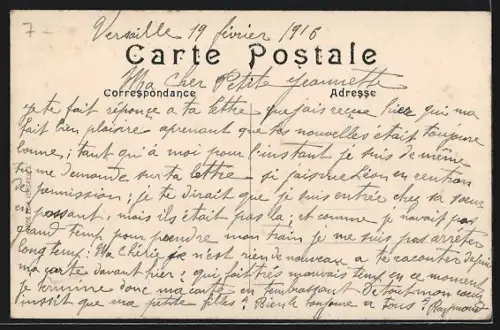 7-
Versaille 19 février 1916
Carte Postale
Ma Cher Petite Jeannette
Correspondance Adresse
je te fait réponçe a ta lettre que jais reçue hier qui ma
fait bien plaisire aprenant que tes nouvelles était toujoure
bonne; tant qu'à moi pour l'instant je suis de même
tu me demande sur ta lettre si jais vue Léon en rentron
de permission; je te dirait que je suis entrée chez sa sœur
en passant, mais ils était pas la; et comme je navait pas
grand temp pour prendre mon train je me suis pas arréter
long temp; Ma Chérie je n'est rien de nouveau a te raconter depui
ma carte davant hier; qui fait très mauvais temp en ce moment
je termine donc ma carte en tembrassant de tout mon cœur
insit que ma petite filles Bien le toujoure a tous Raymond